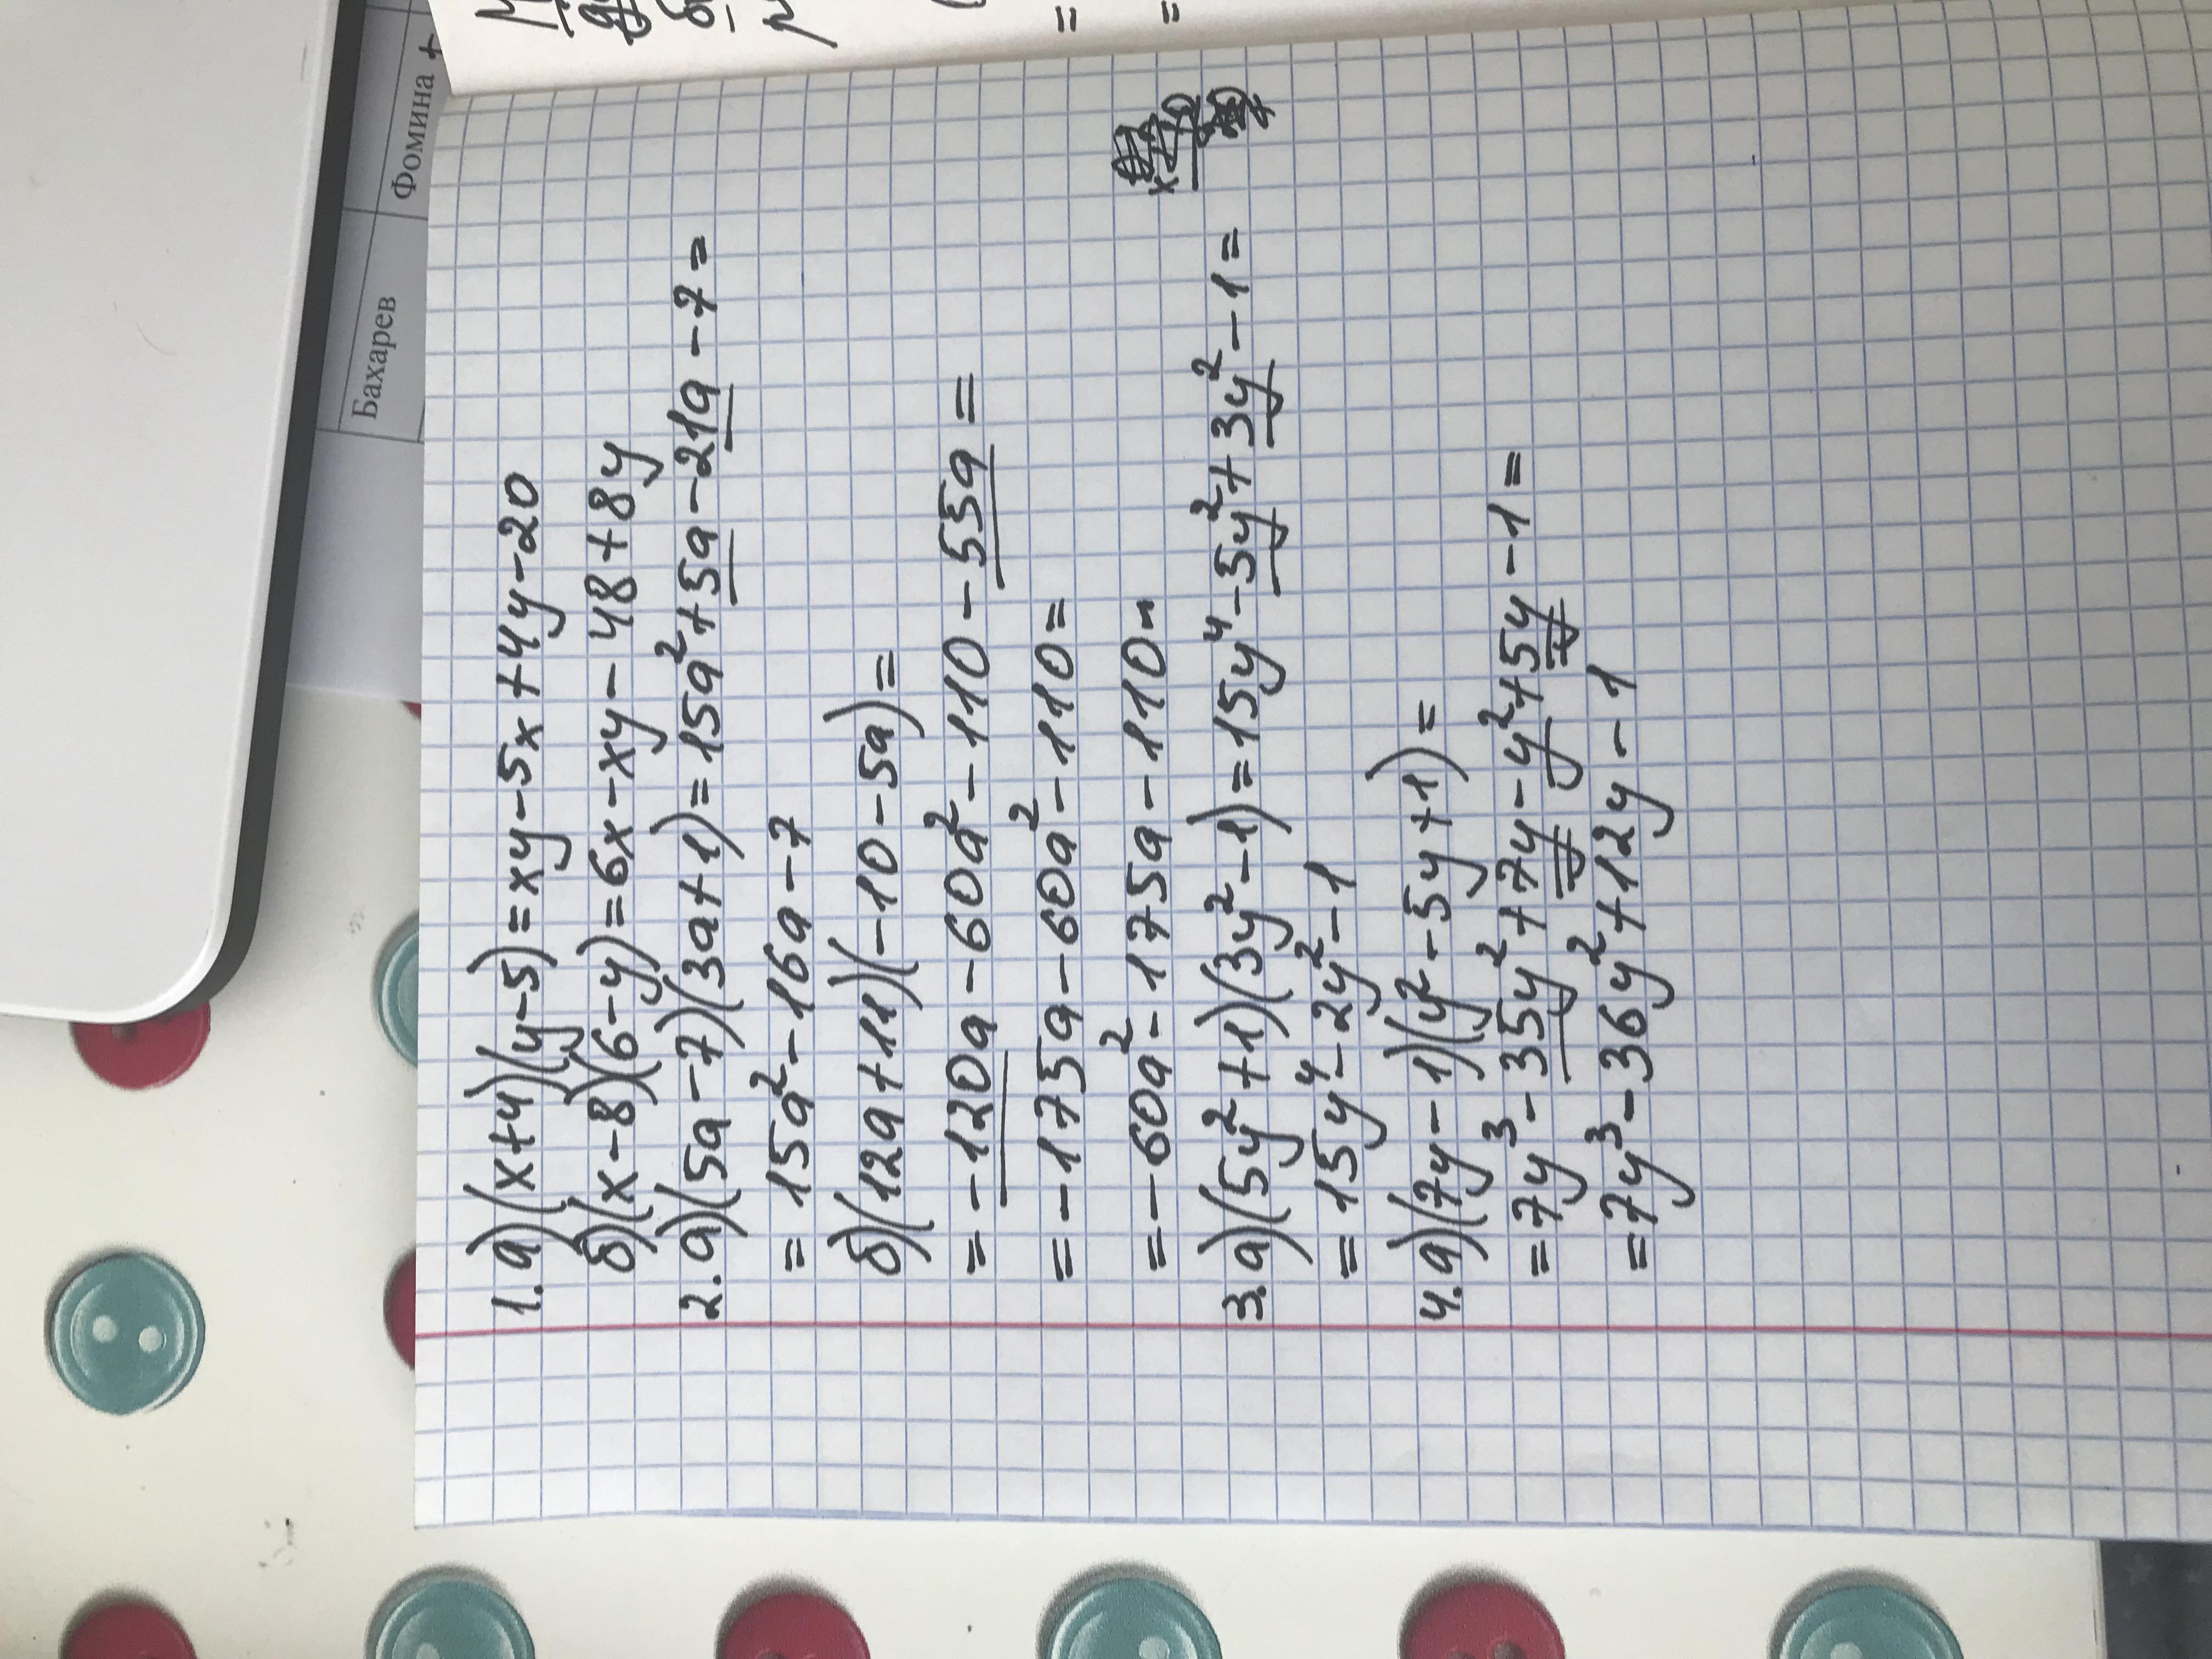 Бахарев
Фомина +
1. а) (x+4)(y-5)=xy-5x+4y-20
б) (x-8)(6-y)=6x-xy-48+8y
2. а) (5a-7)(3a+1)=15a²+5a-21a-7=
=15a²-16a-7
б) (12a+11)(-10-5a)=
=-120a-60a²-110-55a=
=-175a-60a²-110=
=-60a²-175a-110
3. а) (5y²+1)(3y²-1)=15y⁴-5y²+3y²-1=
=15y⁴-2y²-1
4. а) (7y-1)(y²-5y+1)=
=7y³-35y²+7y-y²+5y-1=
=7y³-36y²+12y-1